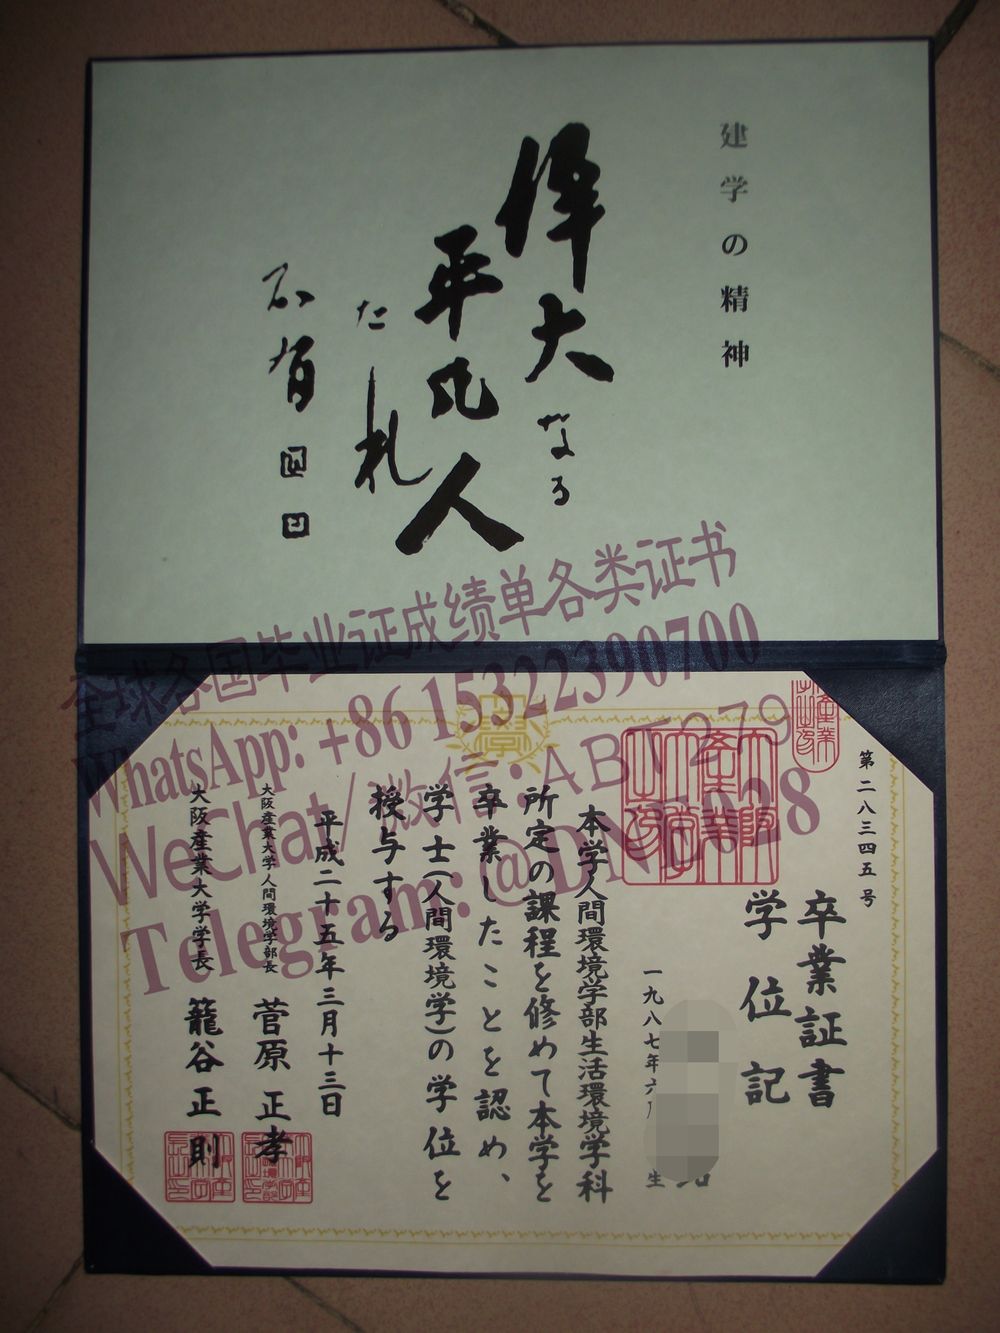 建学の精神
偉大なる
平凡人
たれ
全球各国毕业证成绩单各类证书
WhatsApp: +86 15322390700
WeChat/微信: ABT279
Telegram: @DNT028
第二八三四五号
卒業証書
学位記
一九八七年六
生
本学人間環境学部生活環境学科
所定の課程を修めて本学を
卒業したことを認め、
学士(人間環境学)の学位を
授与する
平成二十五年三月十三日
大阪産業大学人間環境学部長 菅原正孝
大阪産業大学学長 籠谷正則